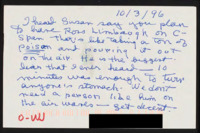 10/3/96
I heard Susan say you plan
to have Ross Limbaugh on C-
Span. That's like taking a ton of
poison and pouring it out
on the air. He is the biggest
liar that I ever heard — 10
minutes was enough to turn
anyone's stomach. We don't
need a person like him on
the air waves — get decent
O-UU